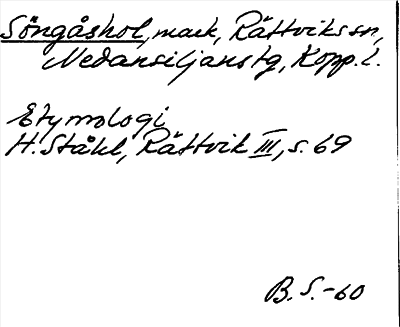 Söngåshol, mark, Rättviks sn,
Nedansiljans tg, Kopp. l.
Etymologi
H. Ståhl, Rättvik III, s. 69
B. S. -60